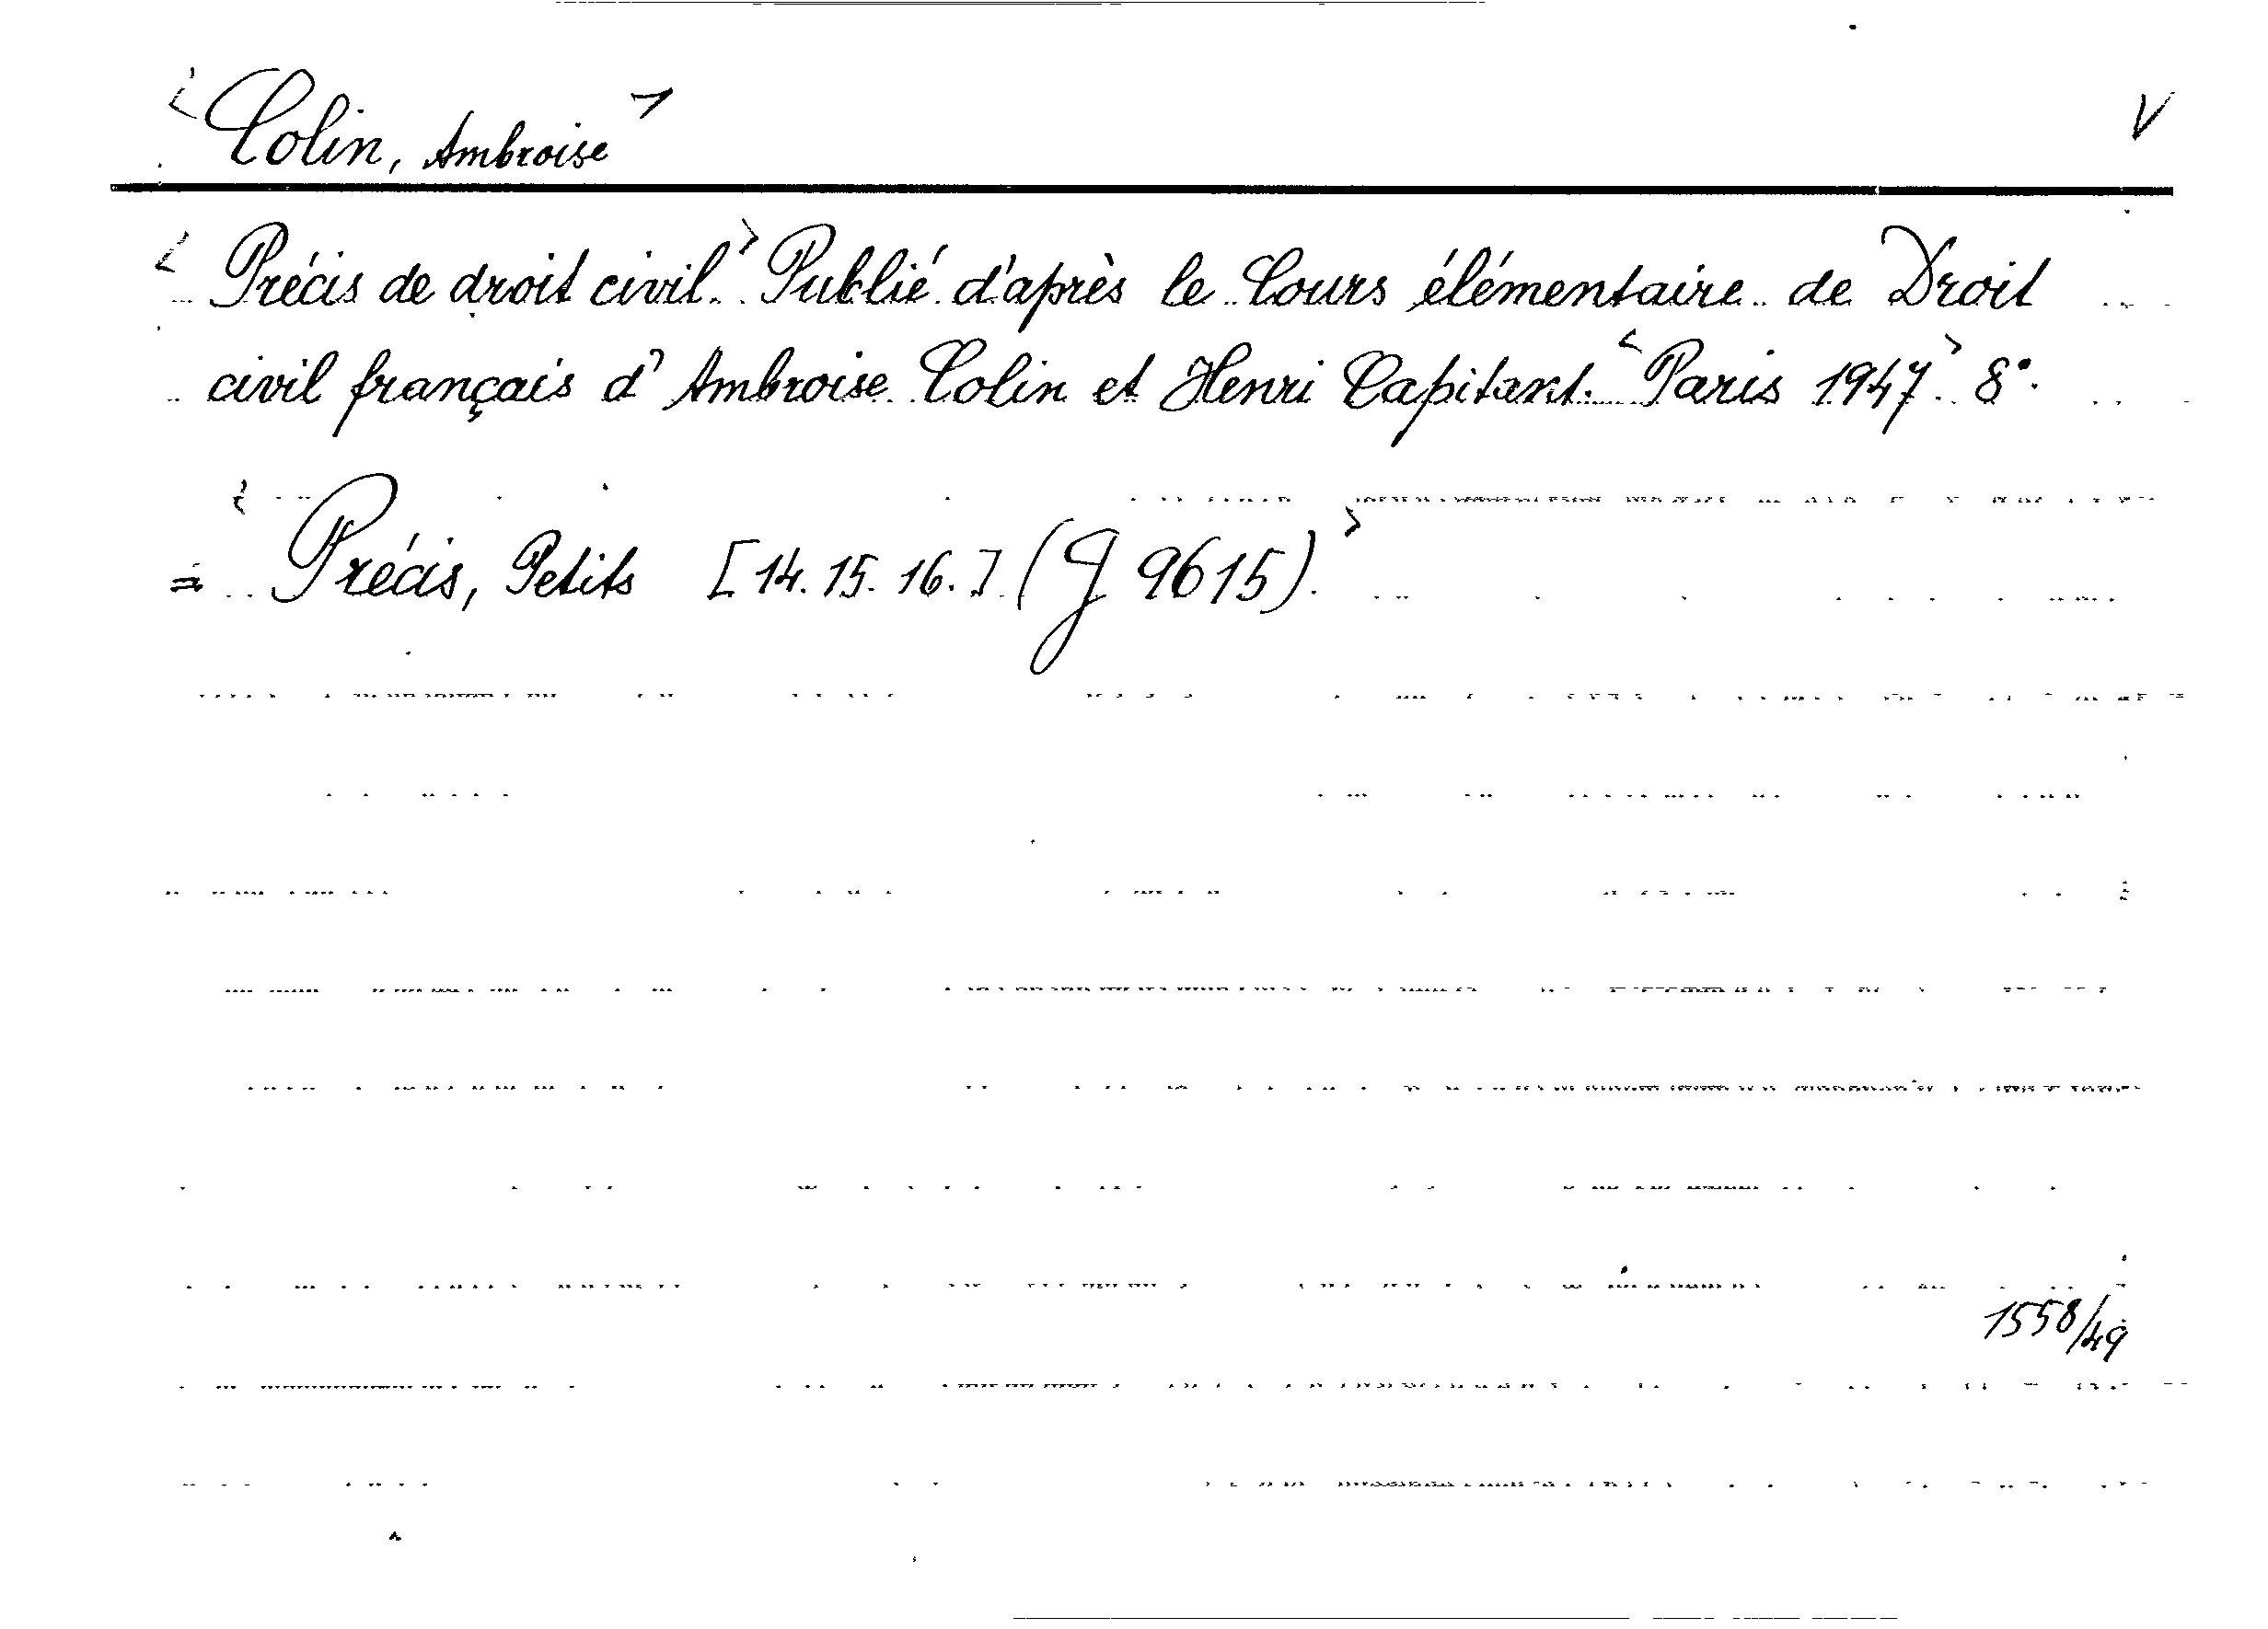 < Colin, Ambroise > V
< Précis de droit civil. > Publié d'après le Cours élémentaire de Droit
civil français d'Ambroise Colin et Henri Capitant. < Paris 1947 > 8°.
< = Précis, Petits [14. 15. 16.] (J 9615). >
1558/49